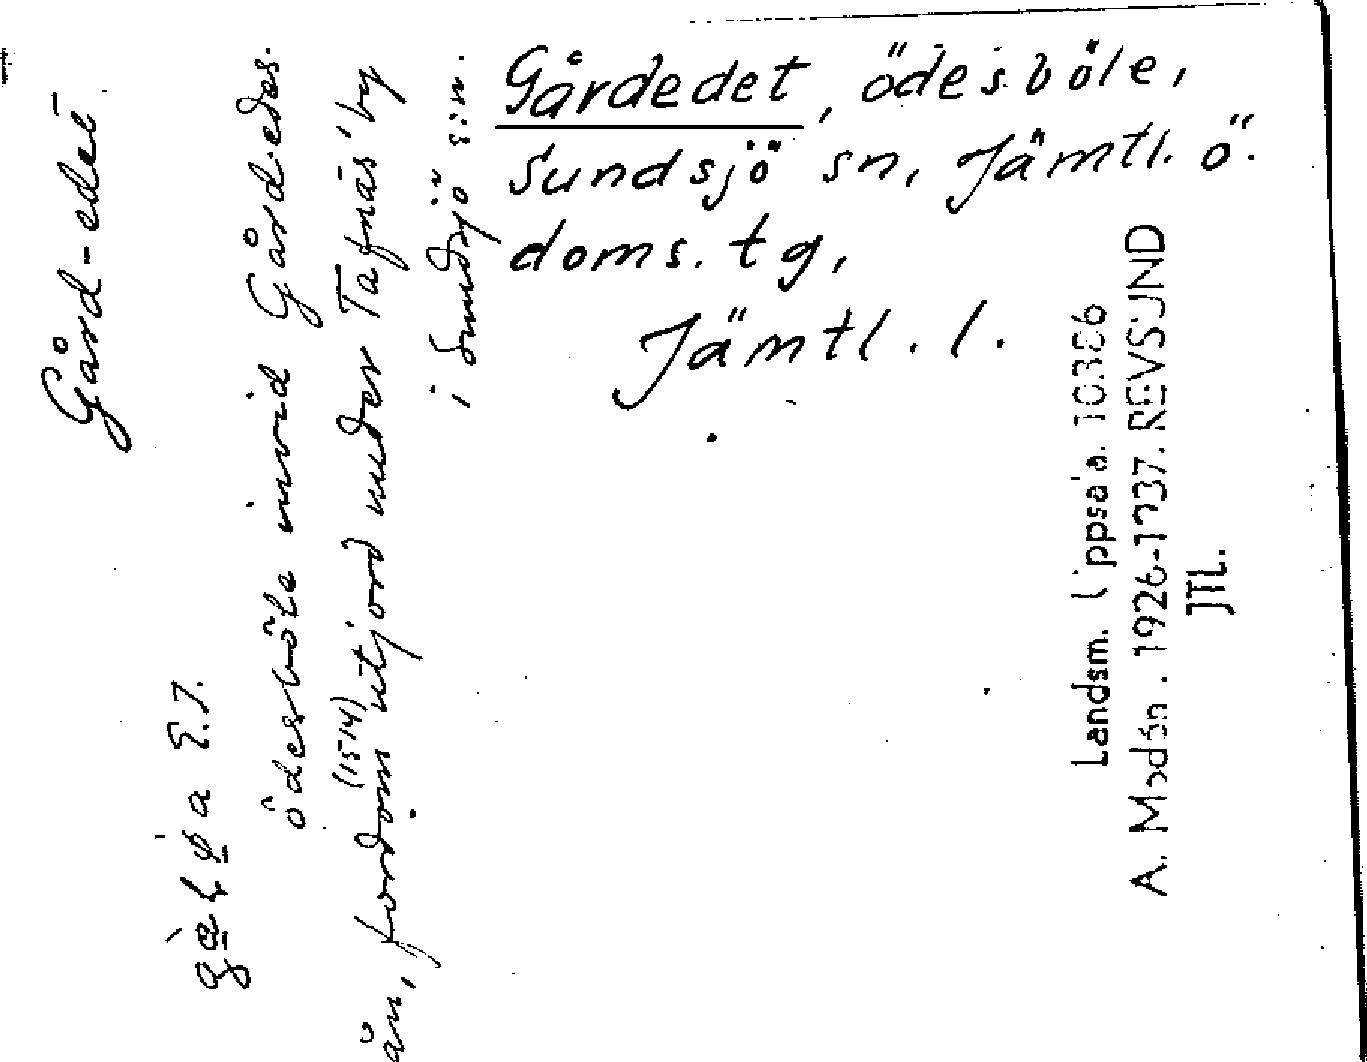 Gårdedet, ödesböle,
Sundsjö sn, Jämtl. ö.
doms. tg,
Jämtl. l.
Gård-edet
E.J.
ödesböle invid Gårdedes-
ån, fordom (1514) utjord under Tafnäs' by
i Sundsjö s:n.
Landsm. Uppsala 10386
A. Modén. 1926-1937. REVSUND
JTL.